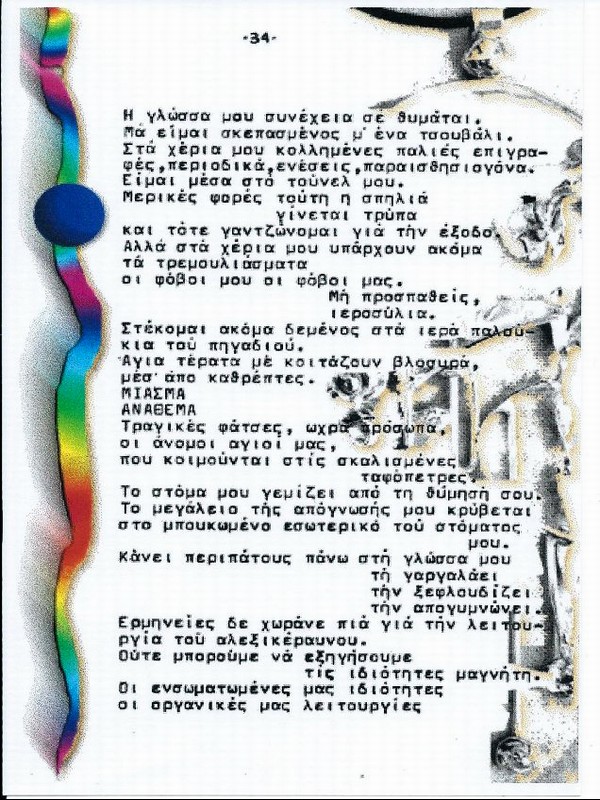 -34-
Η γλώσσα μου συνέχεια σέ θυμάται.
Μά είμαι σκεπασμένος μ' ένα τσουβάλι.
Στά χέρια μου κολλημένες παλιές επιγρα-
φές,περιοδικά,ενέσεις,παραισθησιογόνα.
Είμαι μέσα στό τούνελ μου.
Μερικές φορές τούτη η σπηλιά
γίνεται τρύπα
και τότε γαντζώνομαι γιά τήν έξοδο.
Αλλά στά χέρια μου υπάρχουν ακόμα
τά τρεμουλιάσματα
οι φόβοι μου οι φόβοι μας.
Μή προσπαθείς,
ιεροσύλια.
Στέκομαι ακόμα δεμένος στά ιερά παλού-
κια τού πηγαδιού.
Άγια τέρατα μέ κοιτάζουν βλοσυρά,
μέσ' άπο καθρέπτες.
ΜΙΑΣΜΑ
ΑΝΑΘΕΜΑ
Τραγικές φάτσες, ωχρά πρόσωπα,
οι άνομοι αγιοί μας,
που κοιμούνται στίς σκαλισμένες
ταφόπετρες.
Το στόμα μου γεμίζει από τη θύμησή σου.
Το μεγάλειο τής απόγνωσής μου κρύβεται
στο μπουκωμένο εσωτερικό τού στόματος
μου.
Κάνει περιπάτους πάνω στή γλώσσα μου
τή γαργαλάει
τήν ξεφλουδίζει
τήν απογυμνώνει.
Ερμηνείες δε χωράνε πιά γιά τήν λειτου-
ργία τού αλεξικέραυνου.
Ούτε μπορούμε νά εξηγήσουμε
τίς ιδιότητες μαγνήτη.
Οι ενσωματωμένες μας ιδιότητες
οι οργανικές μας λειτουργίες